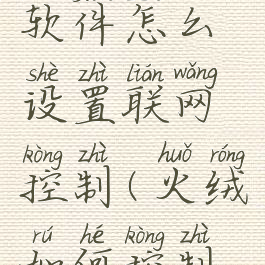 软件怎么
shè zhì lián wǎng
设置联网
kòng zhì huǒ róng
控制(火绒
rú hé kòng zhì
如何控制